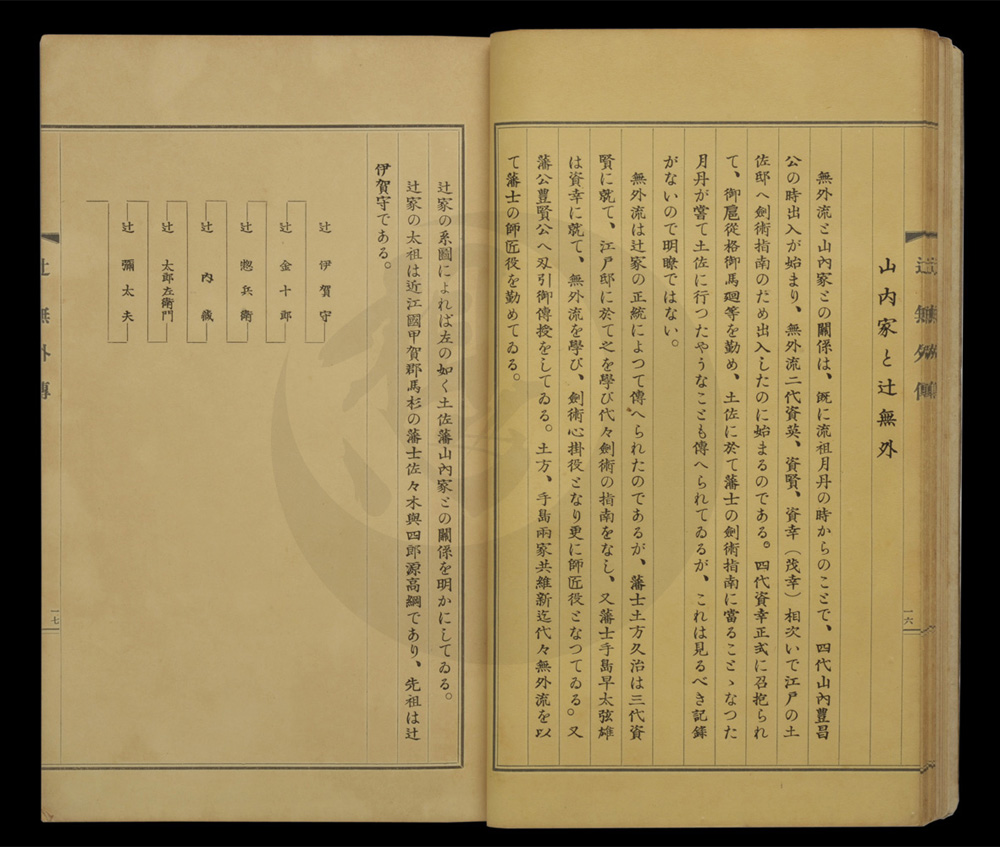 山内家と辻無外
無外流と山內家との關係は、既に流祖月丹の時からのことで、四代山內豊昌
公の時出入が始まり、無外流二代資英、資賢、資幸（茂幸）相次いで江戶の土
佐邸へ劍術指南のため出入したのに始まるのである。四代資幸正式に召抱られ
て、御扈從格御馬廻等を勤め、土佐に於て藩士の劍術指南に當ることゝなつた
月丹が嘗て土佐に行つたやうなことも傳へられてゐるが、これは見るべき記錄
がないので明瞭ではない。
無外流は辻家の正統によつて傳へられたのであるが、藩士土方久治は三代資
賢に就て、江戶邸に於て之を學び代々劍術の指南をなし、又藩士手島早太弦雄
は資幸に就て、無外流を學び、劍術心掛役となり更に師匠役となつてゐる。又
藩公豊賢公へ刄引御傳授をしてゐる。土方、手島兩家共維新迄代々無外流を以
て藩士の師匠役を勤めてゐる。
一六
辻家の系圖によれば左の如く土佐藩山內家との關係を明かにしてゐる。
辻家の太祖は近江國甲賀郡馬杉の藩士佐々木與四郎源高綱であり、先祖は辻
伊賀守である。
辻伊賀守
辻金十郎
辻惣兵衛
辻內藏
辻太郎左衛門
辻彌太夫
辻無外傳
一七